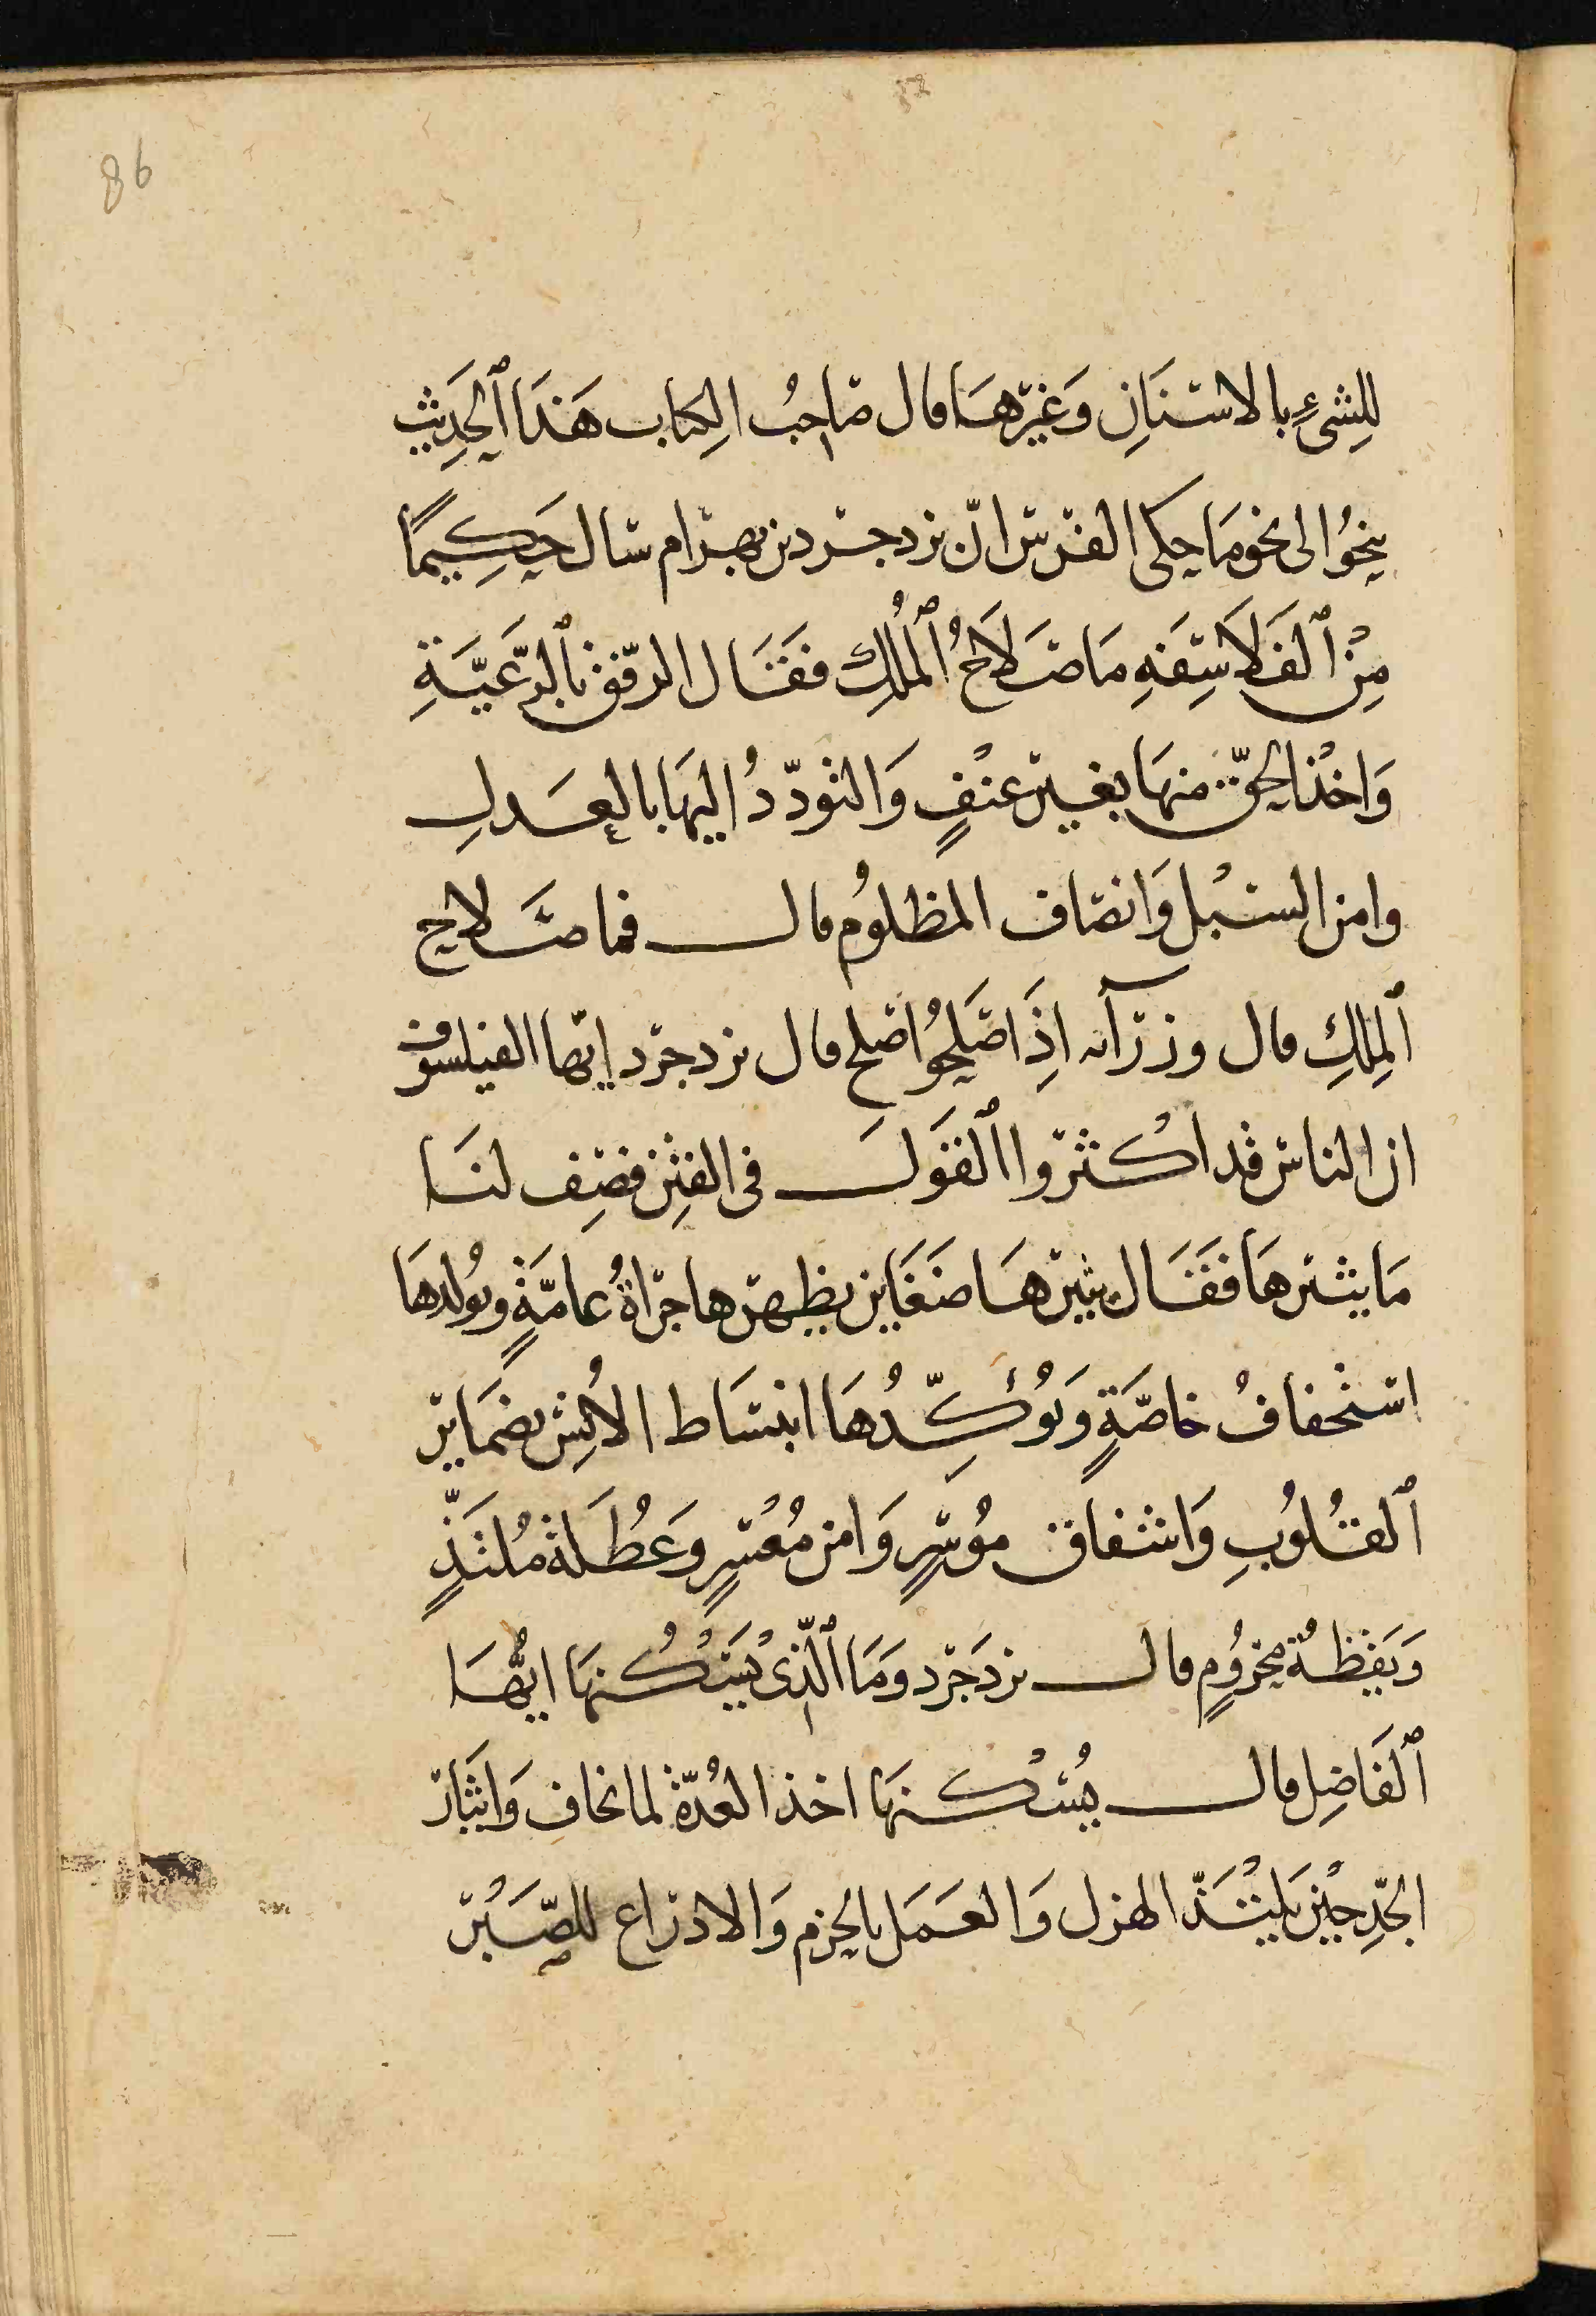 86
للِشىءٍ بالاسنَانِ وَغيرهَا قال صَاحبُ الكِتاب هَذَا ٱلحَدِيث
ينحُوا الى نحو مَا حكى الفرس انّ يزدجرد بن بهرام سال حَكِيمًا
مِنْ ٱلفَلاَسِفَةِ مَا صَلاَحُ ٱلمُلكِ فقَال الرّفق بٱلرّعَيَّةِ
وَاخْذ الحقّ منهَا بغير عنْفٍ وَالتودّدُ اليهَا بالعَدلِ
وامن السبْل وَانصاف المظلوُم قال فما صَلاح
ٱلمِلكِ قال وزرآه اذَِا صَلحُوُا صلح قال يزدجرد ايّها الفيلسوف
ان الناس قد اكثروا ٱلقَولَ فى الفتِن فصِف لنَا
مَا يثيرهَا فقَال يثيرهَا ضغَاين يظهرها جراةُ عامّةٍ ويولدهَا
استْخفافُ خاصّةٍ وَيؤكِّدُهَا انبسَاط الالسُِن بضمَاير
ٱلقلُوُبِ وَاشفاق موُسرٍ وَامن مُعْسرٍ وَعُطلَة مُلتَذٍّ
وَيَقظةُ محروُمٍ قال يزدَجَرد وَمَا ٱلّذى يُسَكنُهَا ايُّهَا
ٱلفَاضِل قال يُسْكنهَا اخذ العُدّة لما نخاف وَايثار
الجدِّ حيْن يَلتَذّ الهزل وَالعَمَل بالحزم وَالادراع للصَّبْر